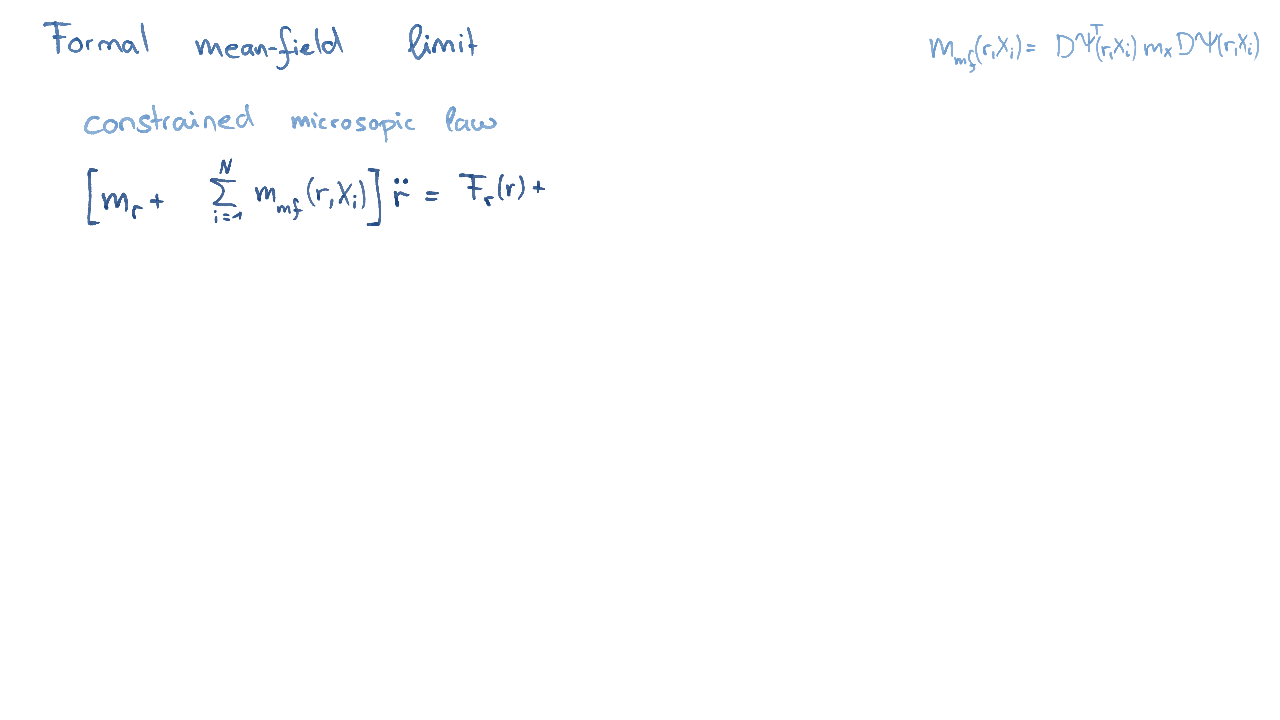 Formal mean-field limit
m_mf(r,X_i) = DΨ^T(r,X_i) m_x DΨ(r,X_i)
constrained microsopic law
[m_r + ∑_{i=1}^N m_mf(r,X_i)] r̈ = F_r(r) +